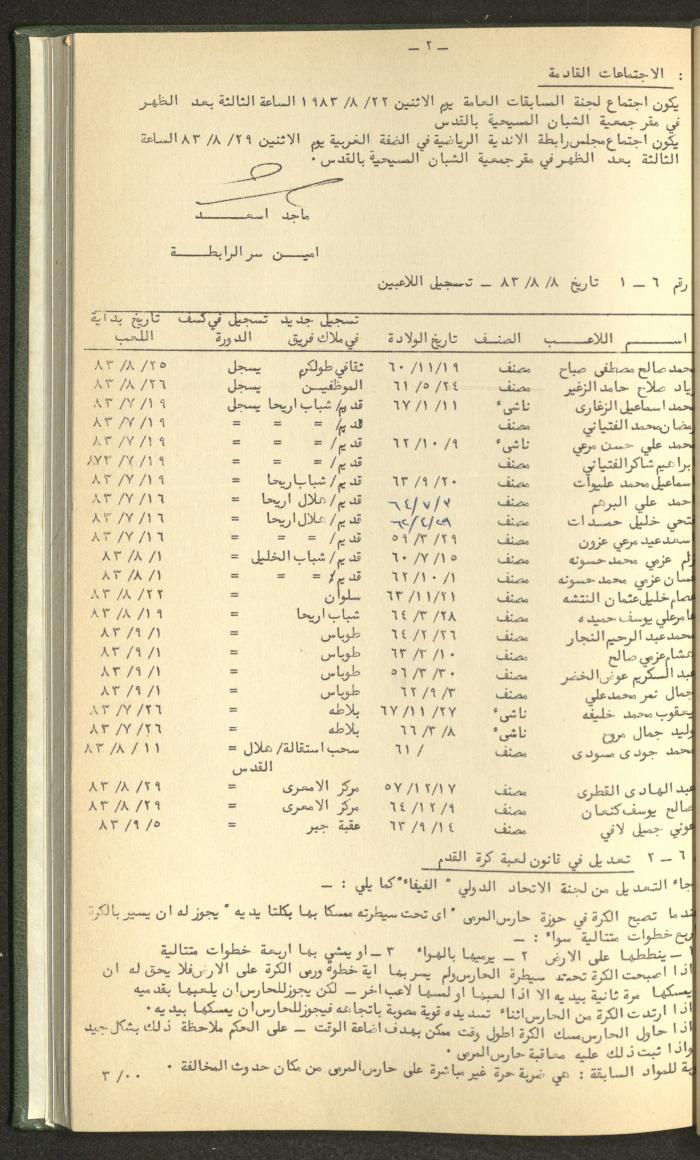 ـ ٢ ـ
الاجتماعات القادمة :
يكون اجتماع لجنة المسابقات العامة يوم الاثنين ٢٢/ ٨/ ١٩٨٣ الساعة الثالثة بعد الظهر
في مقر جمعية الشبان المسيحية بالقدس
يكون اجتماع مجلس رابطة الاندية الرياضية في الضفة الغربية يوم الاثنين ٢٩/ ٨/ ٨٣ الساعة
الثالثة بعد الظهر في مقر جمعية الشبان المسيحية بالقدس٠
ماجد اسعد
امين سر الرابطة
رقم ٦ ـ ١ تاريخ ٨/ ٨/ ٨٣ ـ تسجيل اللاعبين
اسم اللاعب الصنف تاريخ الولادة تسجيل جديد في ملاك فريق تسجيل في كشف الدورة تاريخ بداية اللعب
حمد صالح مصطفى صباح مصنف ١٩/ ١١/ ٦٠ ثقافي طولكرم يسجل ٢٥/ ٨/ ٨٣
ياد صلاح حامد الزغير مصنف ٢٤/ ٥/ ٦١ الموظفين يسجل ٢٦/ ٨/ ٨٣
حمد اسماعيل الزغارى ناشىء ١١/ ١/ ٦٧ قديم/ شباب اريحا يسجل ١٩/ ٧/ ٨٣
مضان محمد الفتياني مصنف قديم/ = = = ١٩/ ٧/ ٨٣
حمد علي حسن مرعي ناشىء ٩/ ١٠/ ٦٢ قديم/ = = = ١٩/ ٧/ ٨٣
براهيم شاكر الفتياني مصنف قديم/ = = = ١٩/ ٧/
سماعيل محمد عليوات مصنف ٢٠/ ٩/ ٦٣ قديم/ شباب اريحا = ١٩/ ٧/ ٨٣
حمد علي البرهم مصنف ٦٤/٧/٧ قديم/ هلال اريحا = ١٦/ ٧/ ٨٣
تحي خليل حمدات مصنف قديم/ هلال اريحا = ١٦/ ٧/ ٨٣
سعد عيد مرعي عزون مصنف ٢٩/ ٣/ ٥٩ قديم/ = = = ١٦/ ٧/ ٨٣
عزمي محمد حسونه مصنف ١٥/ ٧/ ٦٠ قديم/ شباب الخليل = ١/ ٨/ ٨٣
سان عزمي محمد حسونه مصنف ١/ ١٠/ ٦٢ قديم/ = = = ١/ ٨/ ٨٣
صام خليل عثمان النتشه مصنف ٢١/ ١١/ ٦٣ سلوان = ٢٢/ ٨/ ٨٣
امر علي يوسف حميده مصنف ٢٨/ ٣/ ٦٤ شباب اريحا = ١٩/ ٨/ ٨٣
محمد عبد الرحيم النجار مصنف ٢٦/ ٢/ ٦٤ طوباس = ١/ ٩/ ٨٣
هشام عزمي صالح مصنف ١٠/ ٢/ ٦٣ طوباس = ١/ ٩/ ٨٣
عبد السكريم عوض الخضر مصنف ٣٠/ ٣/ ٥٦ طوباس = ١/ ٩/ ٨٣
جمال نمر محمد علي مصنف ٣/ ٩/ ٦٢ طوباس = ١/ ٩/ ٨٣
يعقوب محمد خليفه ناشىء ٢٧/ ١١/ ٦٧ بلاطه = ٢٦/ ٧/ ٨٣
وليد جمال ناشىء ٨/ ٣/ ٦٦ بلاطه = ٢٦/ ٧/ ٨٣
محمد جودى مسودى مصنف / ٦١ سحب استقالة/ هلال = ١١/ ٨/ ٨٣
القدس
عبد الهادى القطرى مصنف ١٧/ ١٢/ ٥٧ مركز الامعرى = ٢٩/ ٨/ ٨٣
صالح يوسف كنعان مصنف ٩/ ١٢/ ٦٤ مركز الامعرى = ٢٩/ ٨/ ٨٣
عوني جميل لافي مصنف ١٤/ ٩/ ٦٣ عقبة جبر = ٥/ ٩/ ٨٣
٦ ـ ٢ تعديل في قانون لعبة كرة القدم
جاء التعديل من لجنة الاتحاد الدولي " الفيفاء" كما يلي : ـ
ندما تصبح الكرة في حوزة حارس المرمى " اى تحت سيطرته ممسكا بها بكلتا يديه " يجوز له ان يسير بالكرة
ربع خطوات متتالية سواء : ـ
١ ـ ينططها على الارض ٢ ـ يرميها بالهواء ٣ ـ او يمشي بها اربعة خطوات متتالية
اذا اصبحت الكرة تحت سيطرة الحارس ولم يسر بها اية خطوة ورمى الكرة على الارض فلا يحق له ان
يمسكها مرة ثانية بيديه الا اذا لعبها او لمسها لاعب اخر ـ لكن يجوز للحارس ان يلعبها بقدميه
اذا ارتدت الكرة من الحارس اثناء تسديده قوية مصوبة باتجاهه فيجوز للحارس ان يمسكها بيديه ٠
اذا حاول الحارس مسك الكرة اطول وقت ممكن بهدف اضاعة الوقت ـ على الحكم ملاحظة ذلك بشكل جيد
واذا ثبت ذلك عليه معاقبة حارس المرمى ٠
للمواد السابقة : هي ضربة حرة غير مباشرة على حارس المرمى من مكان حدوث المخالفة ٠
٣/٠٠